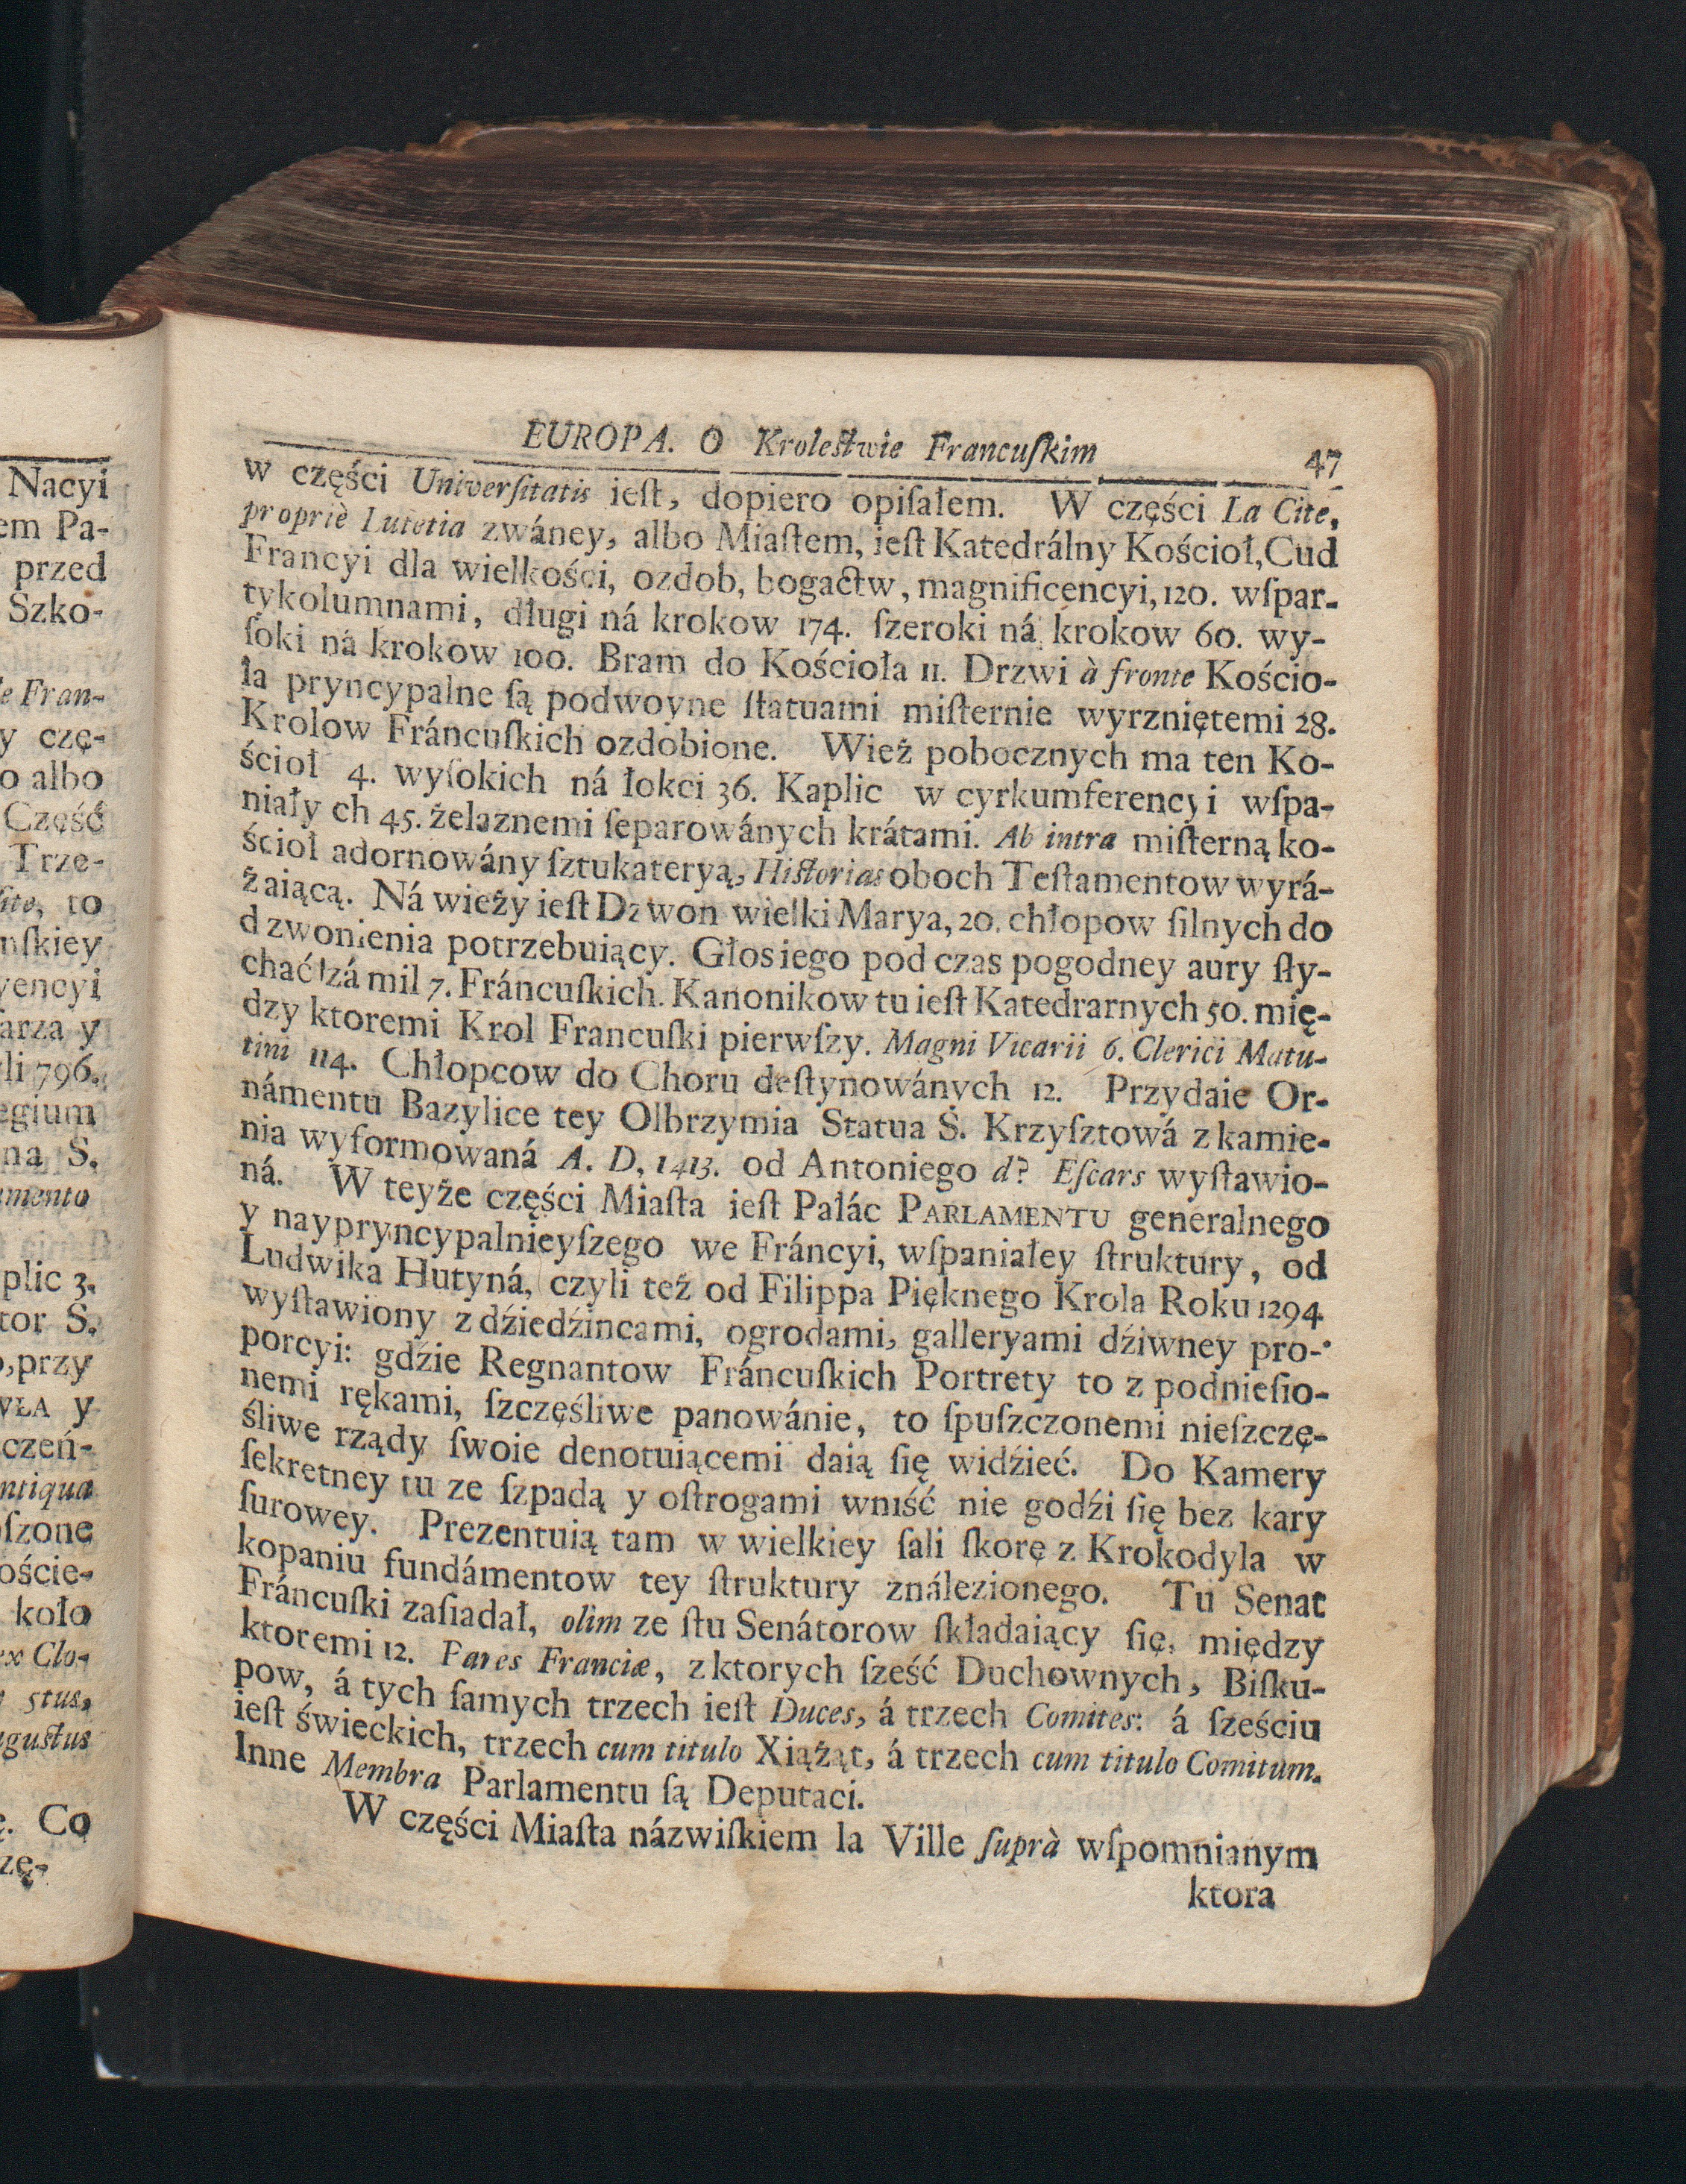 Nacyi
em Pa-
przed
Szko-
e Fran-
y czę-
o albo
Część
Trze-
ſite, to
nſkiey
yencyi
farza y
li 796.
egium
na S.
amento
plic 3.
tor S.
,przy
WŁA y
czeń-
ntiqua
oſzone
oście-
koło
ex Clo-
stus,
gustus
ę. Co
zę-
EUROPA. O Krolestwie Francuſkim 47
w części Univerſitatis ieſt, dopiero opiſałem. W części La Cite,
propriè Lutetia zwáney, albo Miaſtem, ieſt Katedrálny Kościoł, Cud
Francyi dla wielkości, ozdob, bogactw, magnificencyi, 120. wſpar-
tykolumnami, długi ná krokow 174. ſzeroki ná krokow 60. wy-
ſoki ná krokow 100. Bram do Kościoła 11. Drzwi à fronte Kościo-
ła pryncypalne ſą podwoyne ſtatuami miſternie wyrzniętemi 28.
Krolow Fráncuſkich ozdobione. Wież pobocznych ma ten Ko-
ścioł 4. wyſokich ná łokci 36. Kaplic w cyrkumferencyi wſpa-
niały ch 45. żelaznemi ſeparowánych krátami. Ab intra miſterną ko-
ścioł adornowány ſztukateryą, Historias oboch Teſtamentow wyrá-
żaiącą. Ná wieży ieſt Dzwon wielki Marya, 20. chłopow ſilnych do
dzwonienia potrzebuiący. Głos iego pod czas pogodney aury ſły-
chać zá mil 7. Fráncuſkich. Kanonikow tu ieſt Katedrarnych 50. mię-
dzy ktoremi Krol Francuſki pierwſzy. Magni Vicarii 6. Clerici Matu-
tini 114. Chłopcow do Choru deſtynowánych 12. Przydaie Or-
námentu Bazylice tey Olbrzymia Statua S. Krzyſztowá z kamie-
nia wyformowaná A. D. 1413. od Antoniego d? Eſcars wyſtawio-
ná. W teyże części Miaſta ieſt Pałác PARLAMENTU generalnego
y naypryncypalnieyſzego we Fráncyi, wſpaniałey ſtruktury, od
Ludwika Hutyná, czyli też od Filippa Pięknego Krola Roku 1294
wyſtawiony z dźiedźincami, ogrodami, galleryami dźiwney pro-
porcyi: gdźie Regnantow Fráncuſkich Portrety to z podnieſio-
nemi rękami, ſzczęśliwe panowánie, to ſpuſzczonemi nieſzczę-
śliwe rządy ſwoie denotuiącemi daią ſię widźieć. Do Kamery
ſekretney tu ze ſzpadą y oſtrogami wniść nie godźi ſię bez kary
ſurowey. Prezentuią tam w wielkiey ſali ſkorę z Krokodyla w
kopaniu fundámentow tey ſtrukturyználezionego. Tu Senat
Fráncuſki zaſiadał, olim ze ſtu Senátorow ſkładaiący ſię, między
ktoremi 12. Pares Franciæ, z ktorych ſześć Duchownych, Biſku-
pow, á tych ſamych trzech ieſt Duces, á trzech Comites: á ſześciu
ieſt świeckich, trzech cum titulo Xiążąt, á trzech cum titulo Comitum.
Inne Membra Parlamentu ſą Deputaci.
W części Miaſta názwiſkiem la Ville ſuprà wſpomnianym
ktora